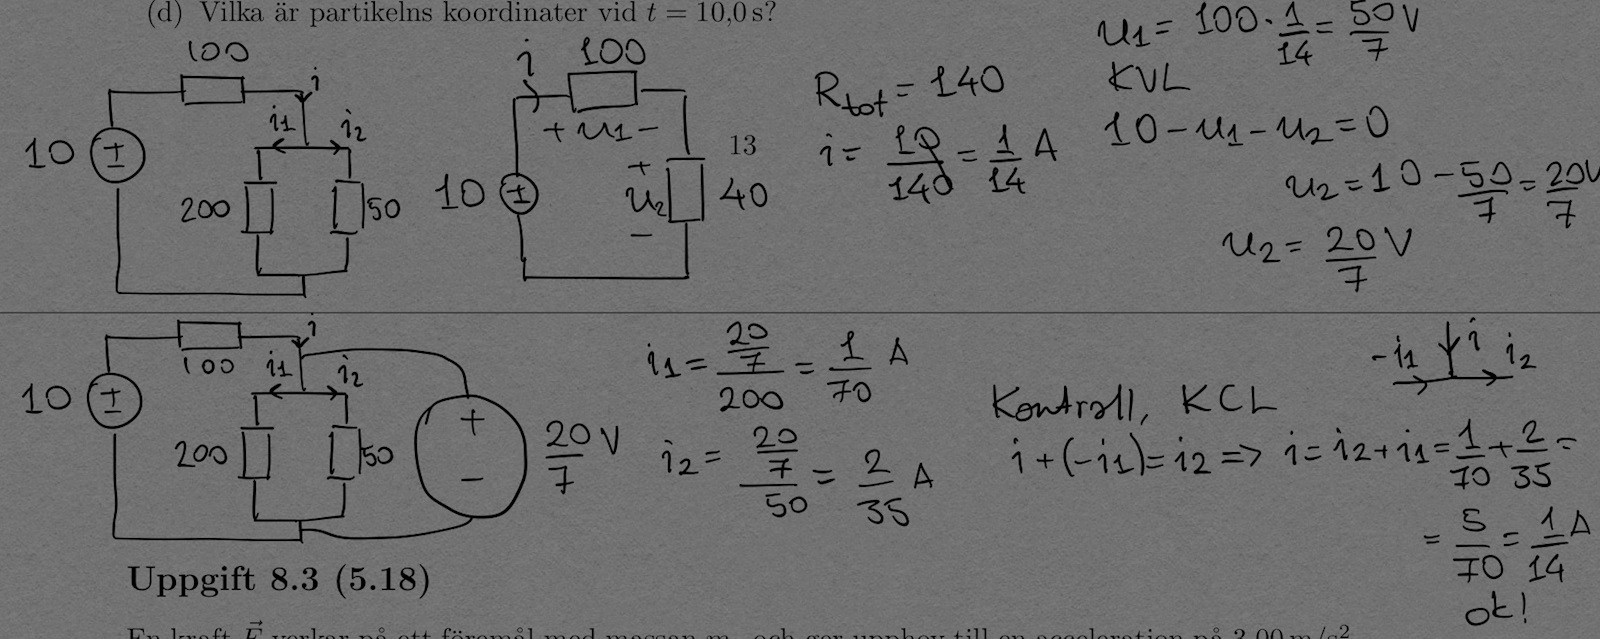 (d) Vilka är partikelns koordinater vid t = 10,0 s?
100
i
i1
i2
10
±
200
50
i
100
+ u1 −
13
10
±
+
u2
−
40
Rtot = 140
i = 10/140 = 1/14 A
u1 = 100 · 1/14 = 50/7 V
KVL
10 − u1 − u2 = 0
u2 = 10 − 50/7 = 20/7 V
u2 = 20/7 V
100
i
i1
i2
10
±
200
50
+
−
20/7 V
i1 = (20/7)/200 = 1/70 A
i2 = (20/7)/50 = 2/35 A
Kontroll, KCL
−i1
i
i2
i + (−i1) = i2 => i = i2 + i1 = 1/70 + 2/35 =
= 5/70 = 1/14 A
ok!
Uppgift 8.3 (5.18)
En kraft F⃗ verkar på ett föremål med massan m, och ger upphov till en acceleration på 3,00 m/s²